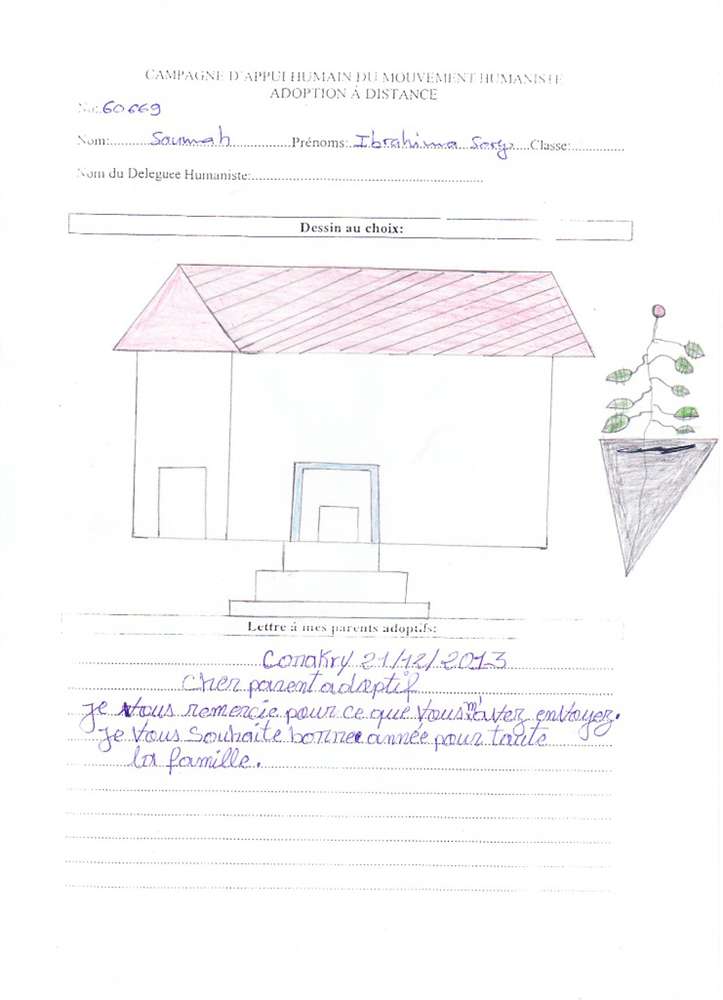 CAMPAGNE D'APPUI HUMAIN DU MOUVEMENT HUMANISTE
ADOPTION À DISTANCE
No: 60669
Nom: Soumah Prénoms: Ibrahima Sory Classe:
Nom du Deleguee Humaniste:
Dessin au choix:
Lettre à mes parents adoptifs:
Conakry 21/12/2013
Cher parent adoptif
je vous remercie pour ce que vous m'avez envoyez.
je vous souhaite bonne année pour toute
la famille.